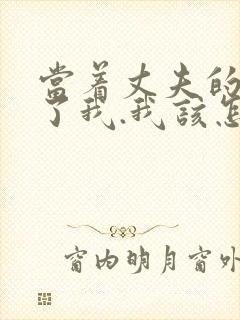 當着丈夫的
了我.我該怎
窗内明月窗外